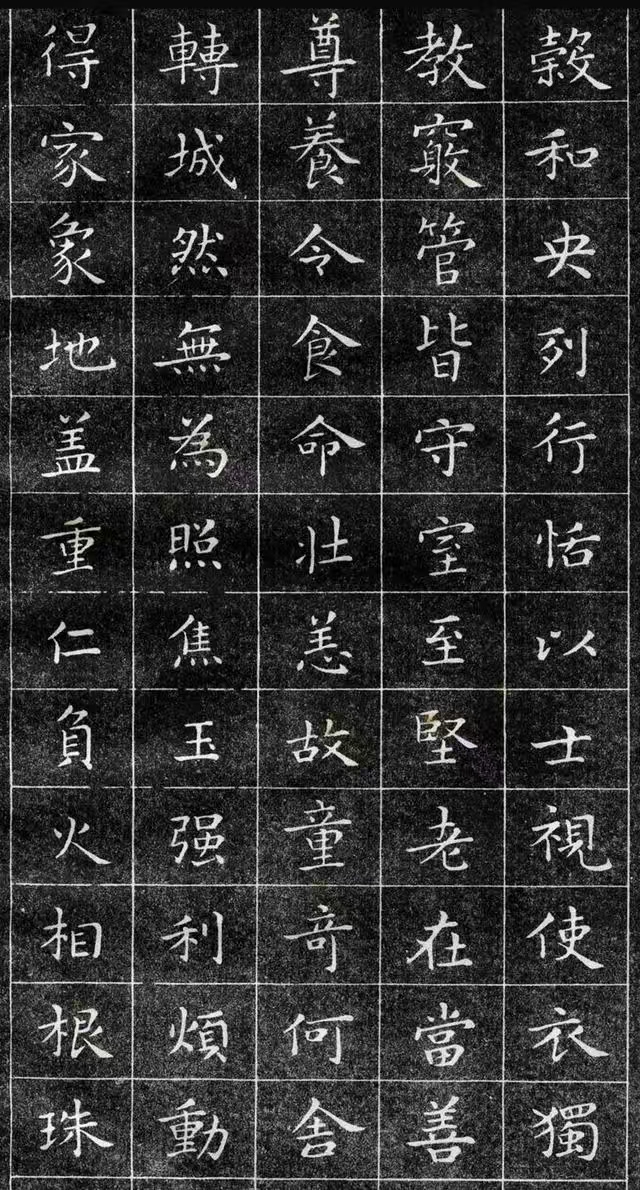 榖和央列行恬以士視使衣獨
教竅管皆守室至堅老在當善
尊養令食命壯恙故童奇何舍
轉城然無為照焦玉强利煩動
得家象地盖重仁負火相根珠